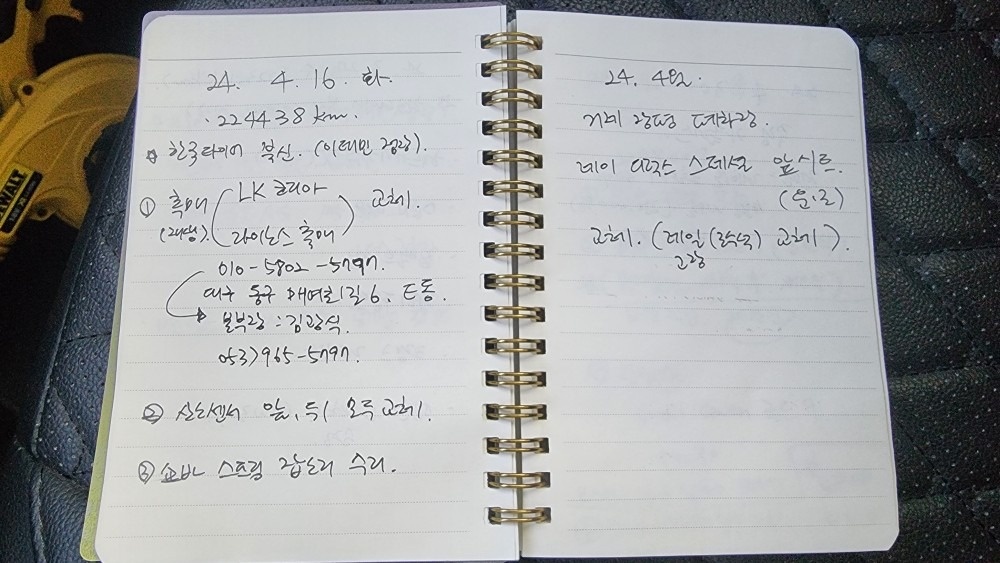 24. 4. 16. 화.
224438 km.
한국타이어 북신. (이태민 점장).
① 촉매 LK 코리아 교체.
(재생). 라이노스 촉매
010-5802-5797.
대구 동구 매여로1길 6. E동.
본부장 : 김광식.
053) 965-5797.
② 산소센서 앞, 뒤 모두 교체.
③ 쇼바 스프링 잡소리 수리.
24. 4월.
거제 장평 폐차장.
레이 디럭스 스페셜 앞시트.
(운.조)
교체. (레일 (조수석) 교체).
고장
DEWALT